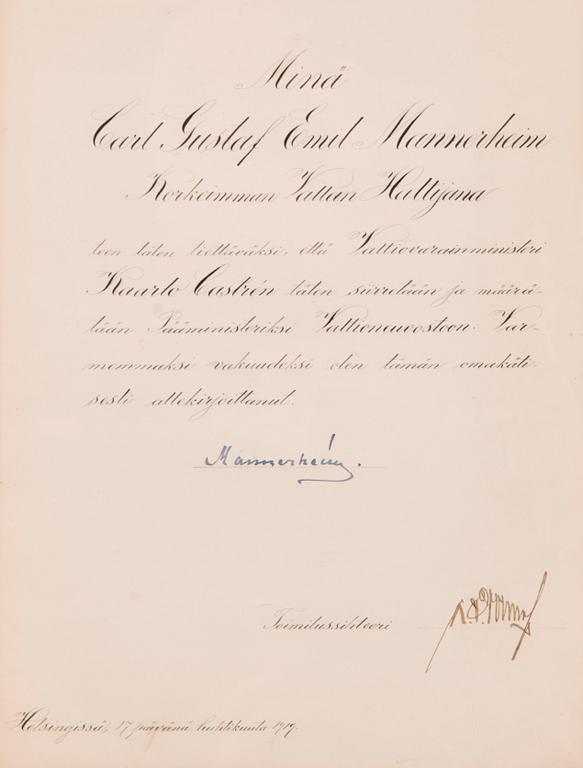 Minä
Carl Gustaf Emil Mannerheim
Korkeimman Vallan Haltijana
teen täten tiettäväksi, että Valtiovarainministeri
Kaarlo Castrén täten siirretään ja määrä-
tään Pääministeriksi Valtioneuvostoon. Var-
memmaksi vakuudeksi olen tämän omakäti-
sesti allekirjoittanut.
Mannerheim.
Toimitussihteeri
Helsingissä, 17 päivänä huhtikuuta 1919.